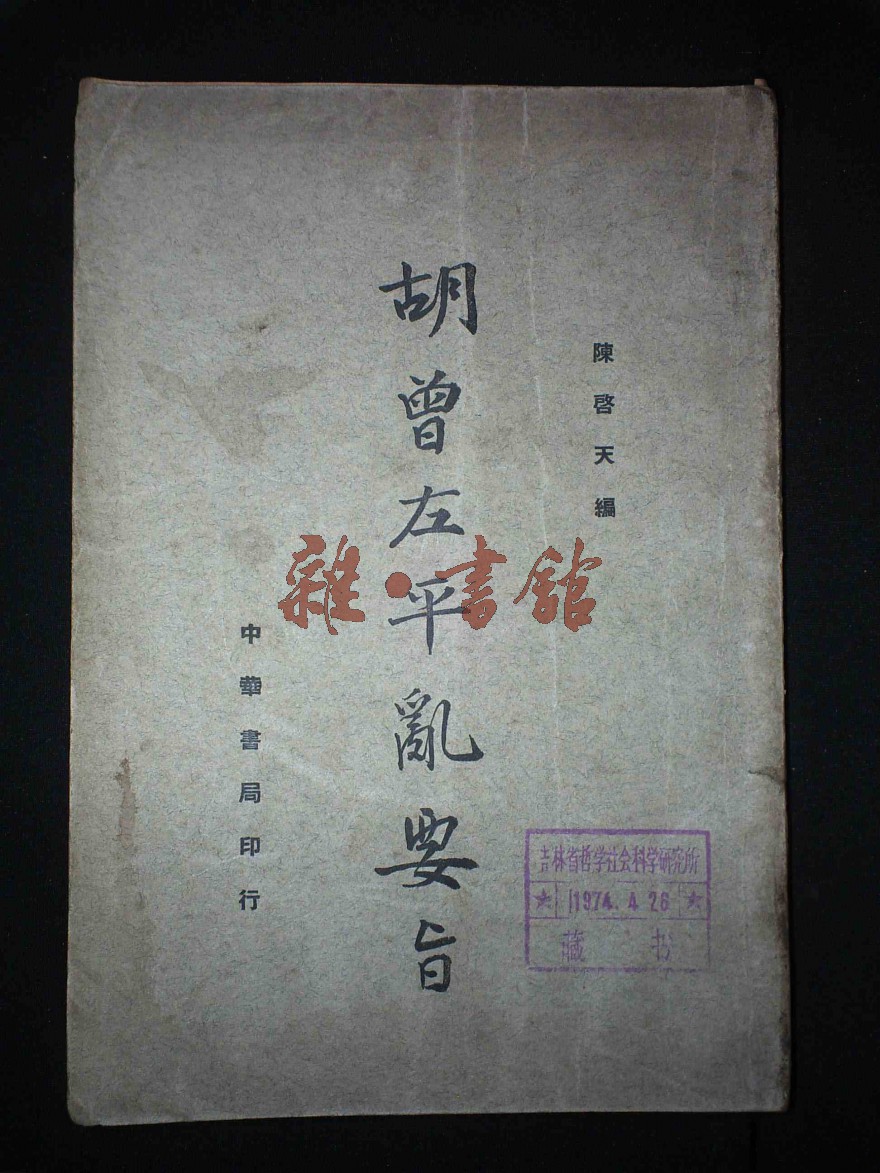 陳啓天編
胡曾左平亂要旨
中華書局印行
雜·書館
吉林省哲学社会科学研究所
★ 1974.4 26 ★
藏 书